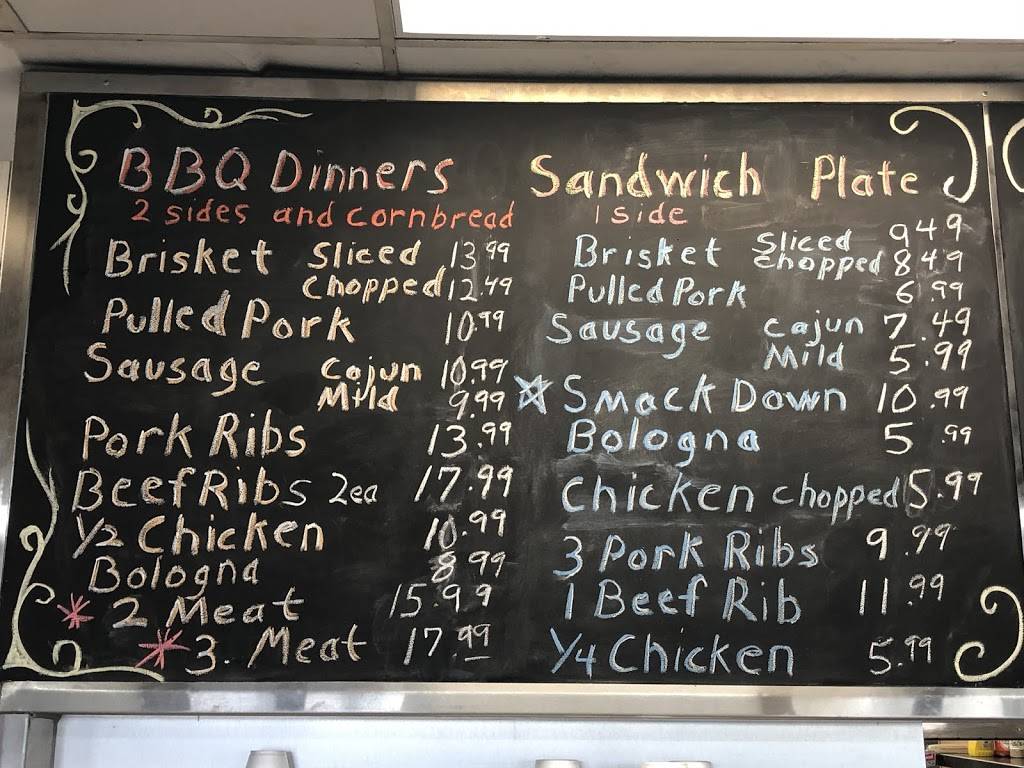 BBQ Dinners
2 sides and cornbread
Brisket Sliced 13.99
Chopped 12.49
Pulled Pork 10.99
Sausage Cajun 10.99
Mild 9.99
Pork Ribs 13.99
Beef Ribs 2ea 17.99
1/2 Chicken 10.99
Bologna 8.99
* 2 Meat 15.99
* 3. Meat 17.99
Sandwich Plate
1 side
Brisket Sliced 9 49
Chopped 8 49
Pulled Pork 6.99
Sausage Cajun 7.49
Mild 5.99
☆ Smack Down 10.99
Bologna 5.99
Chicken chopped 5.99
3 Pork Ribs 9.99
1 Beef Rib 11.99
1/4 Chicken 5.99